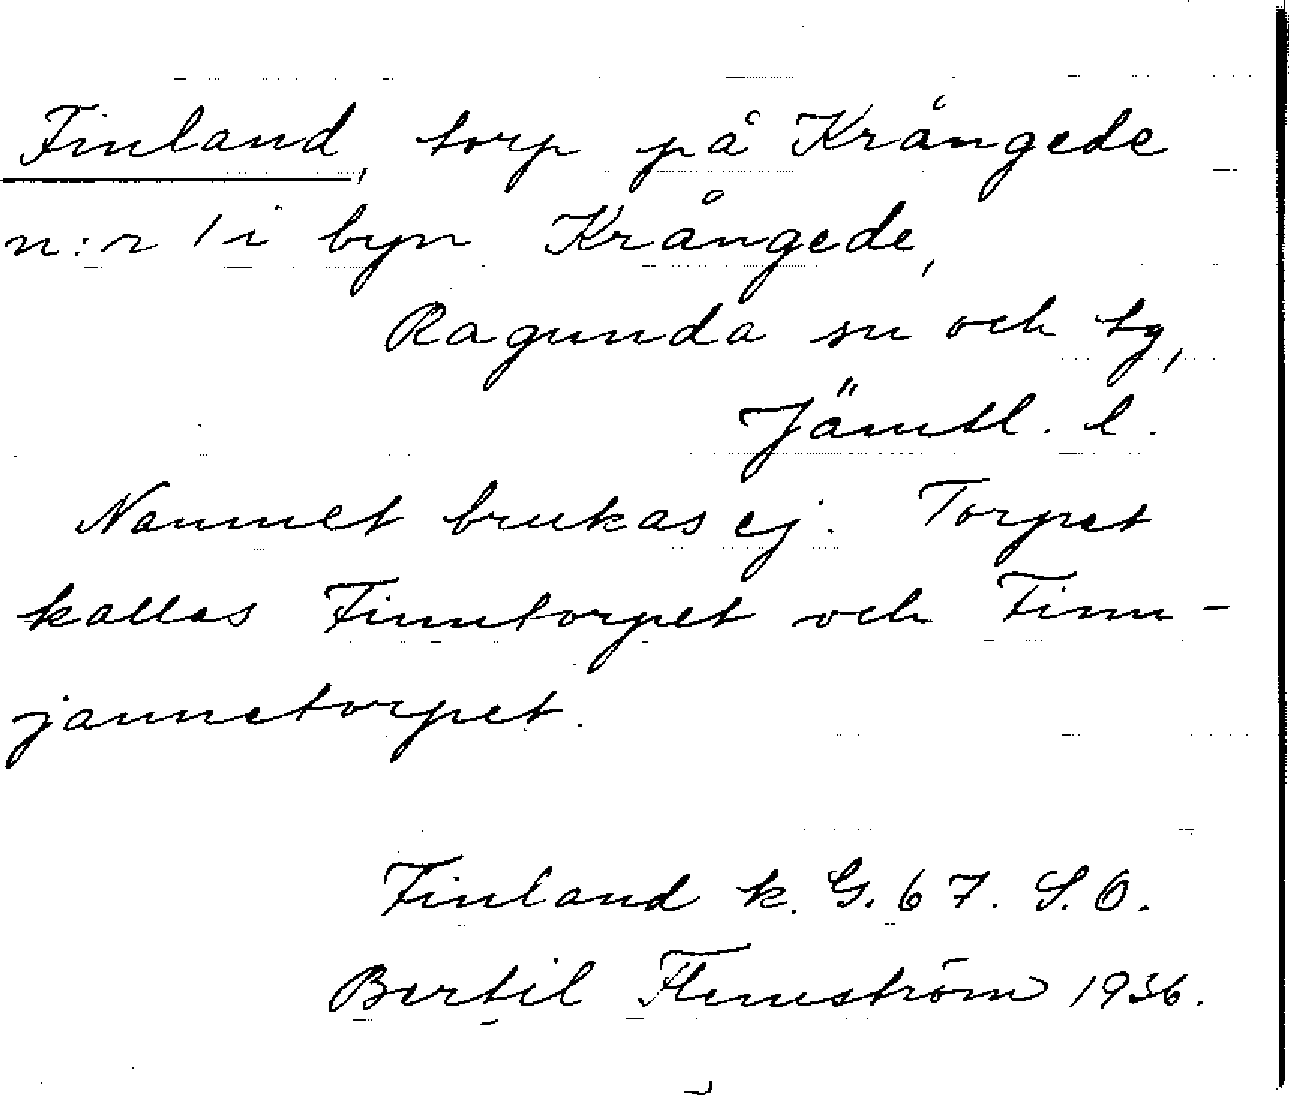 Finland, torp på Krångede
n:r 1 i byn Krångede,
Ragunda sn och tg,
Jämtl. l.
Namnet brukas ej. Torpet
kallas Finntorpet och Finn-
jannetorpet.
Finland k. G. 67. S.O.
Bertil Flemström 1936.